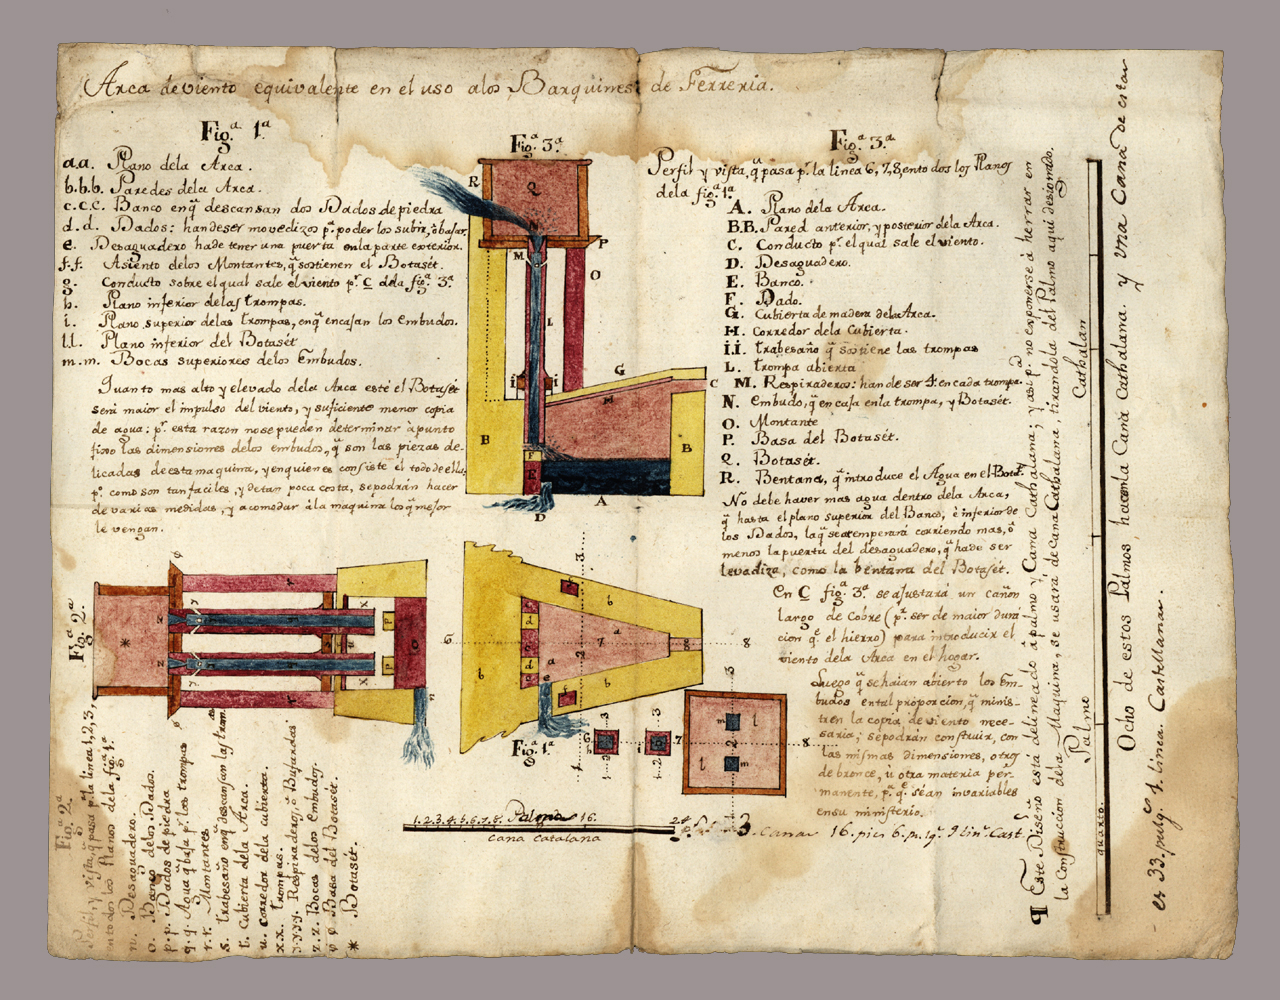 Arca de viento equivalente en el uso alos Barquines de Ferreria.
Figª 1ª
a.a. Plano dela Arca.
b.b.b. Paredes dela Arca.
c.c.c. Banco enq̃ descansan dos Dados de piedra
d.d. Dados: han deser movedizos pª poder los subir, ò bajar.
e. Desaguadero ha de tener una puerta enla parte exterior.
f.f. Asiento delos Montantes, q̃ sostienen el Botasét.
g. Conducto sobre el qual sale el viento pʳ C dela figª 3ª
h. Plano inferior delas trompas.
i. Plano superior delas trompas, enq̃ encajan los embudos.
l.l. Plano inferior del Botasét
m.m. Bocas superiores delos Embudos.
Quanto mas alto y elevado dela Arca esté el Botasét
será maior el impulso del viento, y suficiente menor copia
de agua: pʳ esta razon nose pueden determinar àpunto
fixo las dimensiones delos embudos, q̃ son las piezas de-
licadas de esta maquina, y enquienes consiste el todo de ella,
pº como son tan faciles, y detan poca costa, se podrán hacer
de varias medidas, y acomodar àla maquina los q̃ mejor
le vengan.
Figª 3ª
R
Q
N
P
M
O
L
i
i
G
H
C
B
B
F
E
D
A
Figª 3ª
Perfil y vista, q̃ pasa pʳ la linea 6, 7, 8, entodos los Planos
dela figª 1ª
A. Plano dela Arca.
B.B. Pared anterior, y posterior dela Arca.
C. Conducto pʳ el qual sale el viento.
D. Desaguadero.
E. Banco.
F. Dado.
G. Cubierta de madera dela Arca.
H. Corredor dela Cubierta.
i.i. trabesaño q̃ sostiene las trompas
L. trompa abierta
M. Respiraderos: han de ser 4. en cada trompa.
N. Embudo, q̃ encaja enla trompa, y Botasét.
O. Montante
P. Basa del Botasét.
Q. Botasét.
R. Bentana, q̃ introduce el Agua en el Botasét.
No debe haver mas agua dentro dela Arca,
q̃ hasta el plano superior del Banco, è inferior de
los Dados, la q̃ se atemperará corriendo mas, ò
menos la puerta del desaguadero, q̃ ha de ser
levadiza, como la bentana del Botasét.
En C figª 3ª se ajustará un cañon
largo de Cobre (pʳ ser de maior dura
cion qᵉ el hierro) para introducir el
viento dela Arca en el hogar.
Luego q̃ se haian abierto los Em-
budos en tal proporcion, q̃ minis-
tren la copia de viento nece-
saria; se podrán construir, con
las mismas dimensiones, otros
de bronce, ù otra materia per-
manente, pª qᵉ sean invariables
ensu ministerio.
Figª 2ª
Figª 2ª
Perfil, y vista, q̃ pasa pʳ la linea 1, 2, 3,
entodos los Planos dela figª 1ª
n. Desaguadero.
o. Banco delos Dados.
p.p. Dados de piedra
q.q. Agua q̃ baja pʳ las trompas
r.r. Montantes
s. trabesaño enq̃ descansan las tram
t. Cubierta dela Arca.
u. corredor dela cubierta
x.x. trompas.
y.y.y.y. Respiraderos, ò Bufaradas
z.z. Bocas delos Embudos.
φ φ Basa del Botasét.
* Botasét.
Figª 1ª
1. 2. 3. 4. 5. 6. 7. 8. Palmos 16. 24
cana catalana
3. Canas 16. pies 6. p. 1q. 9 linˢ Castˢ
¶ Este Diseño está delineado à palmo y Cana Cathalana; y asi pª no exponerse à herrar en
la Construccion dela Maquina, se usará de Cana Cathalana, tirandola del Palmo aqui designado.
Palmo Cathalan
quarto.
Ocho de estos Palmos, hacen la Cana Cathalana. y vna Cana de estas
es 33. pulgˢ 1. linea. Castellanas.